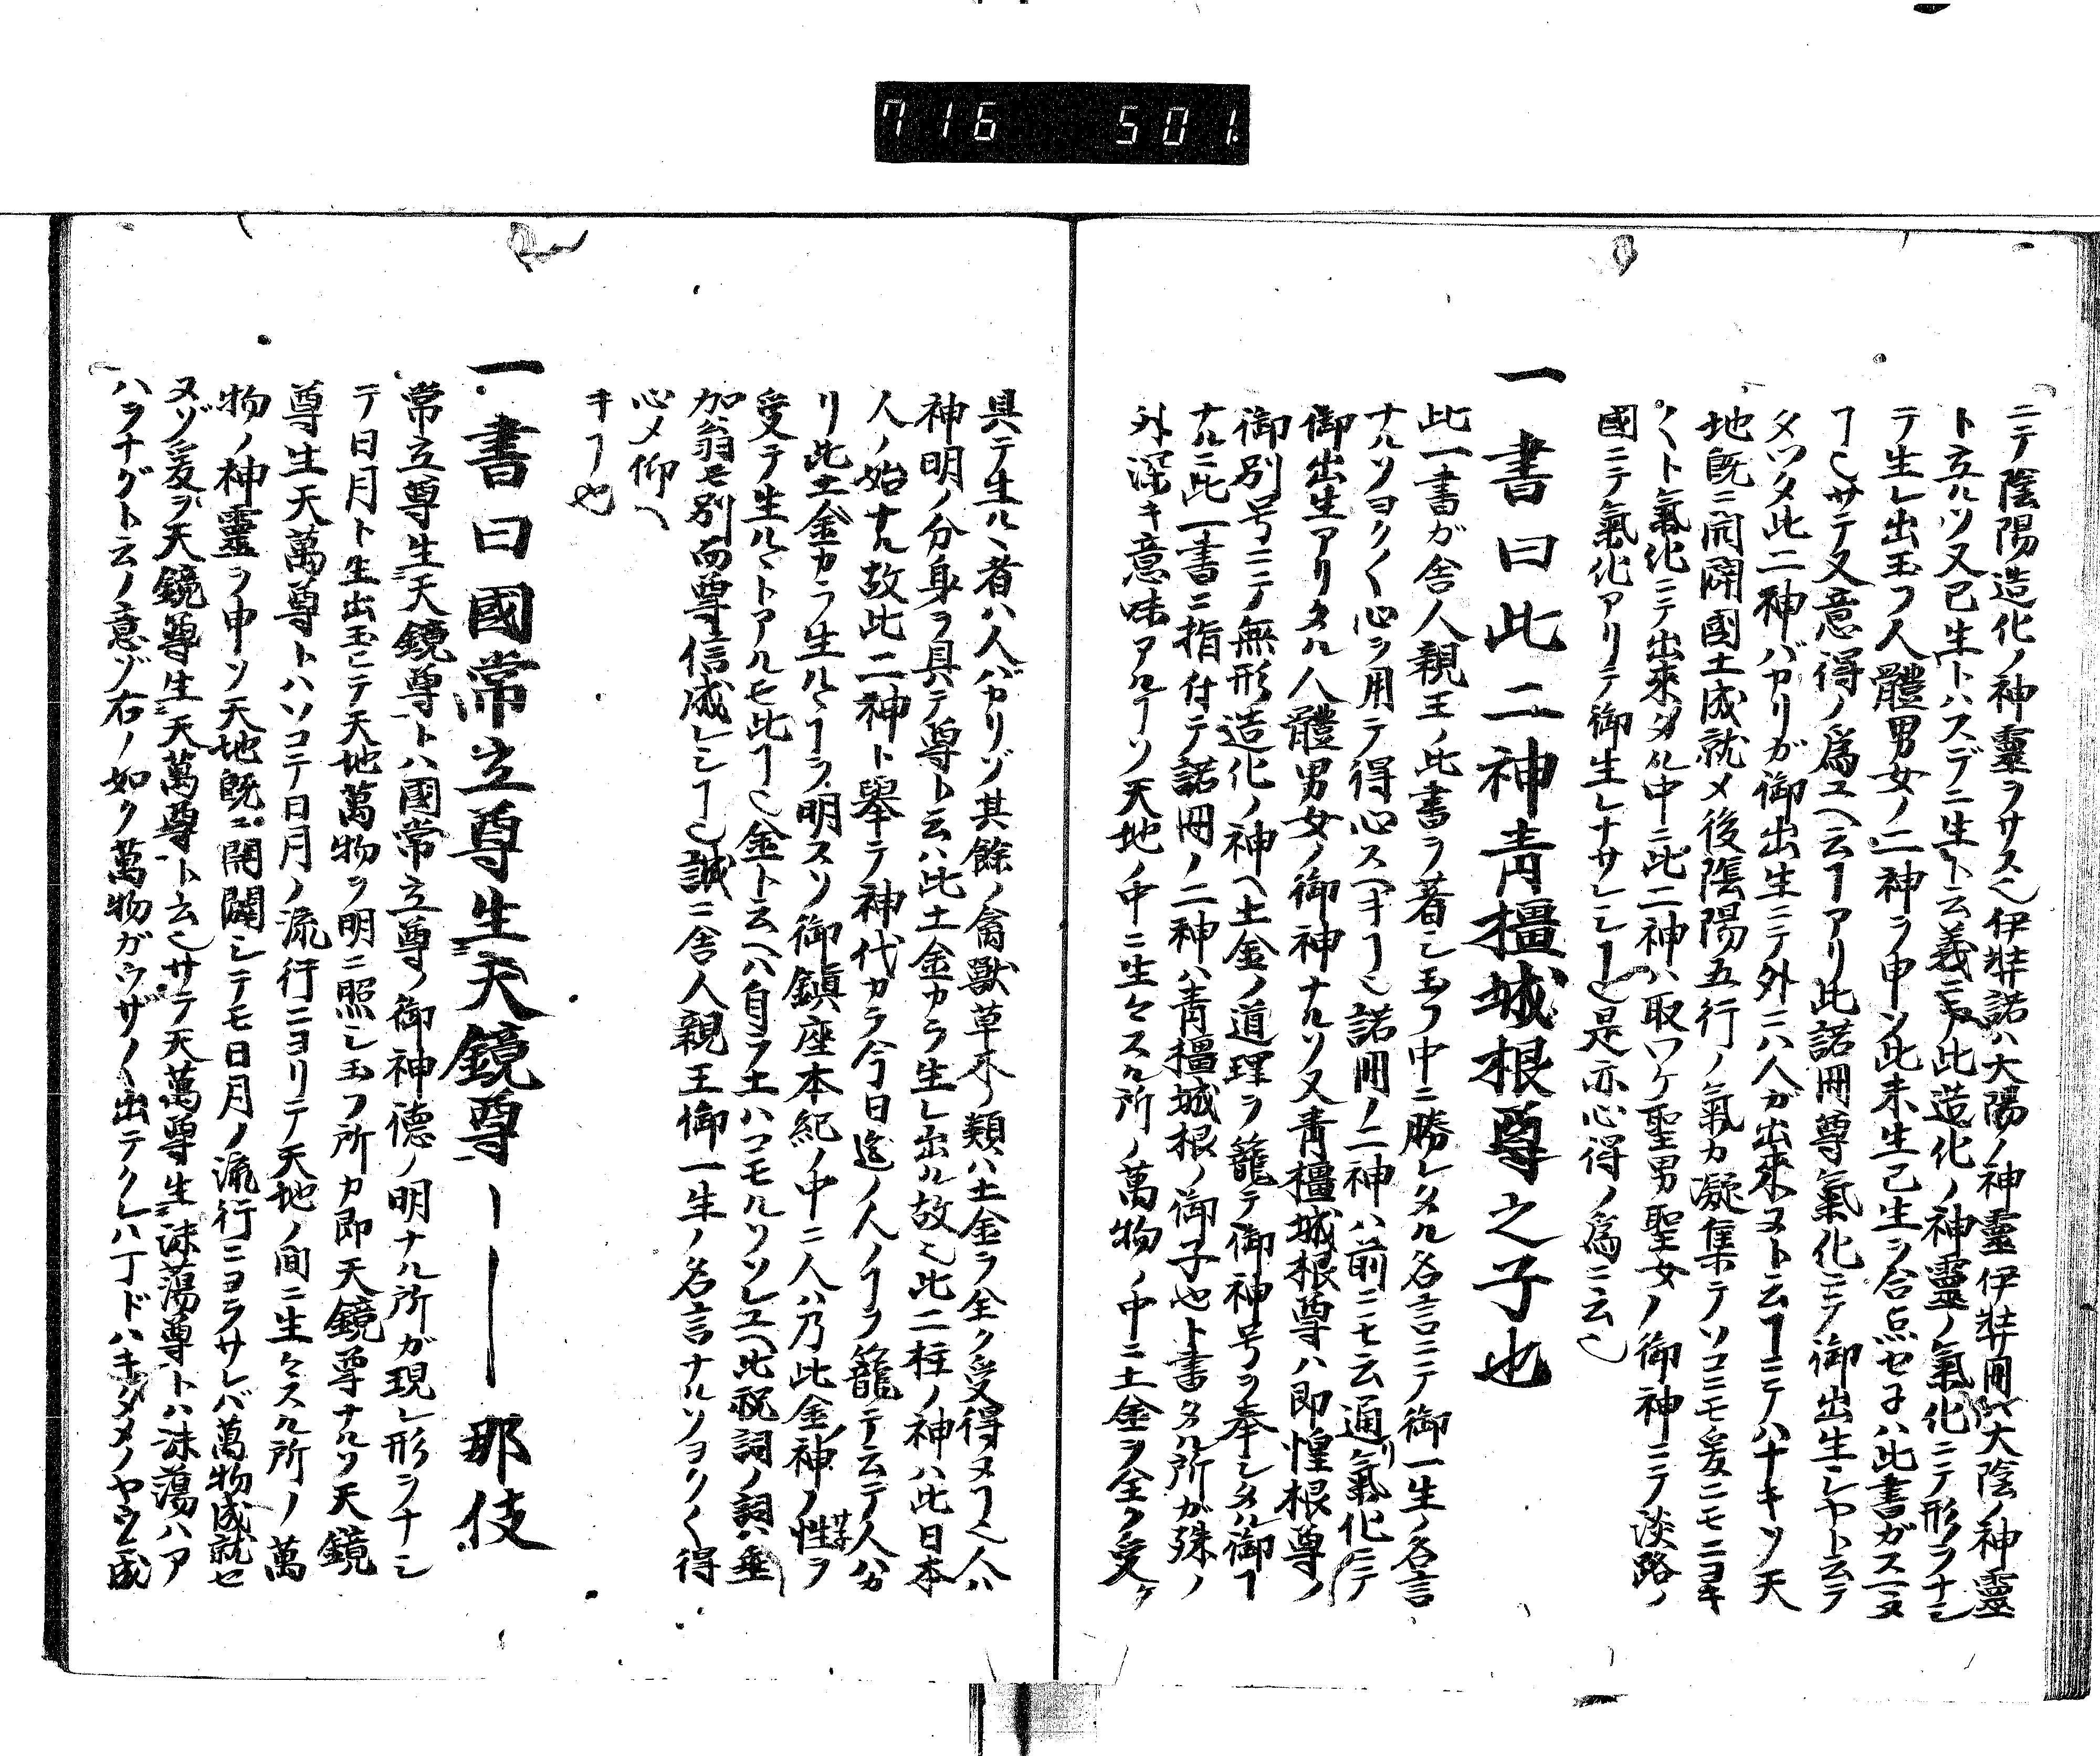 716 501
ニテ陰陽造化ノ神靈ヲサス也伊弉諾ハ大陽ノ神靈伊弉冊ハ大陰ノ神靈
ト立ルソ又已生トハスデニ生ト云義ニテ此造化ノ神靈ノ氣化ニテ形ヲナシ
テ生レ出玉フ人體男女ノ二神ヲ申ソ此未生已生ヲ合点セネハ此書ガスマヌ
ヿ也サテ又意得ノ爲ユヘ云ヿアリ此諾冊尊氣化ニテ御出生シヤト云テ
タツタ此二神バカリガ御出生ニテ外ニハ人ガ出來ヌト云ヿニテハナキソ天
地既ニ開闢國土成就メ後陰陽五行ノ氣カ凝集テソコニモ爰ニモニヨキ
〱ト氣化ニテ出來タル中ニ此二神ハ取ワケ聖男聖女ノ御神ニテ淡路ノ
國ニテ氣化アリテ御生レナサレシヿ也是亦心得ノ爲ニ云也
一書曰此二神青橿城根尊之子也
此一書ガ舎人親王ノ此書ヲ著シ玉フ中ニ勝レタル名言ニテ御一生ノ名言
ナルソヨク〱心ヲ用テ得心スヘキヿ也諾冊ノ二神ハ前ニモ云通リ氣化ニテ
御出生アリタル人體男女ノ御神ナルソ又青橿城根尊ハ即惶根尊ノ
御別号ニテ無形造化ノ神ヘ土金ノ道理ヲ籠テ御神号ヲ奉シタル御ヿ
ナルニ此一書ニ指付テ諾冊ノ二神ハ青橿城根ノ御子也ト書タル所ガ殊ノ
外深キ意味アルヿソ天地ノ中ニ生々スル所ノ萬物ノ中ニ土金ヲ全ク受ケ
具テ生ルヽ者ハ人バカリゾ其餘ノ禽獸草木ノ類ハ土金ヲ全ク受得ヌヿ也人ハ
神明ノ分身ヲ具テ尊ト云ハ此土金カラ生レ出ル故也此二柱ノ神ハ此日本
人ノ始ナル故此二神ト擧テ神代カラ今日迄ノ人ノヿヲ籠テ云テ人ハカ
リ此土金カラ生ルヽヿヲ明スソ御鎭座本紀ノ中ニ人ハ乃此金神ノ性ヲ
受テ生ルヽトアルモ此ヿ也金ト云ヘハ自ラ土ハコモルソソレユヘ此祝詞ノ詞ハ垂
加翁モ別而尊信成レシヿ也誠ニ舎人親王御一生ノ名言ナルソヨク〱得
心メ仰ヘ
キヿ也
一書曰國常立尊生天鏡尊――那伎
常立尊生天鏡尊トハ國常立尊ノ御神德ノ明ナル所ガ現レ形ヲナシ
テ日月ト生出玉ヒテ天地萬物ヲ明ニ照シ玉フ所カ即天鏡尊ナルソ天鏡
尊生天萬尊トハソコテ日月ノ流行ニヨリテ天地ノ間ニ生々スル所ノ萬
物ノ神靈ヲ申ソ天地既ニ開闢シテモ日月ノ流行ニヨラサレバ萬物成就セ
ヌゾ爰ヲ天鏡尊生天萬尊ト云也サテ天萬尊生沫蕩尊トハ沫蕩ハア
ハラナグト云ノ意ゾ右ノ如ク萬物ガウザ〱出テクレハ丁ドハキダメノヤウニ成